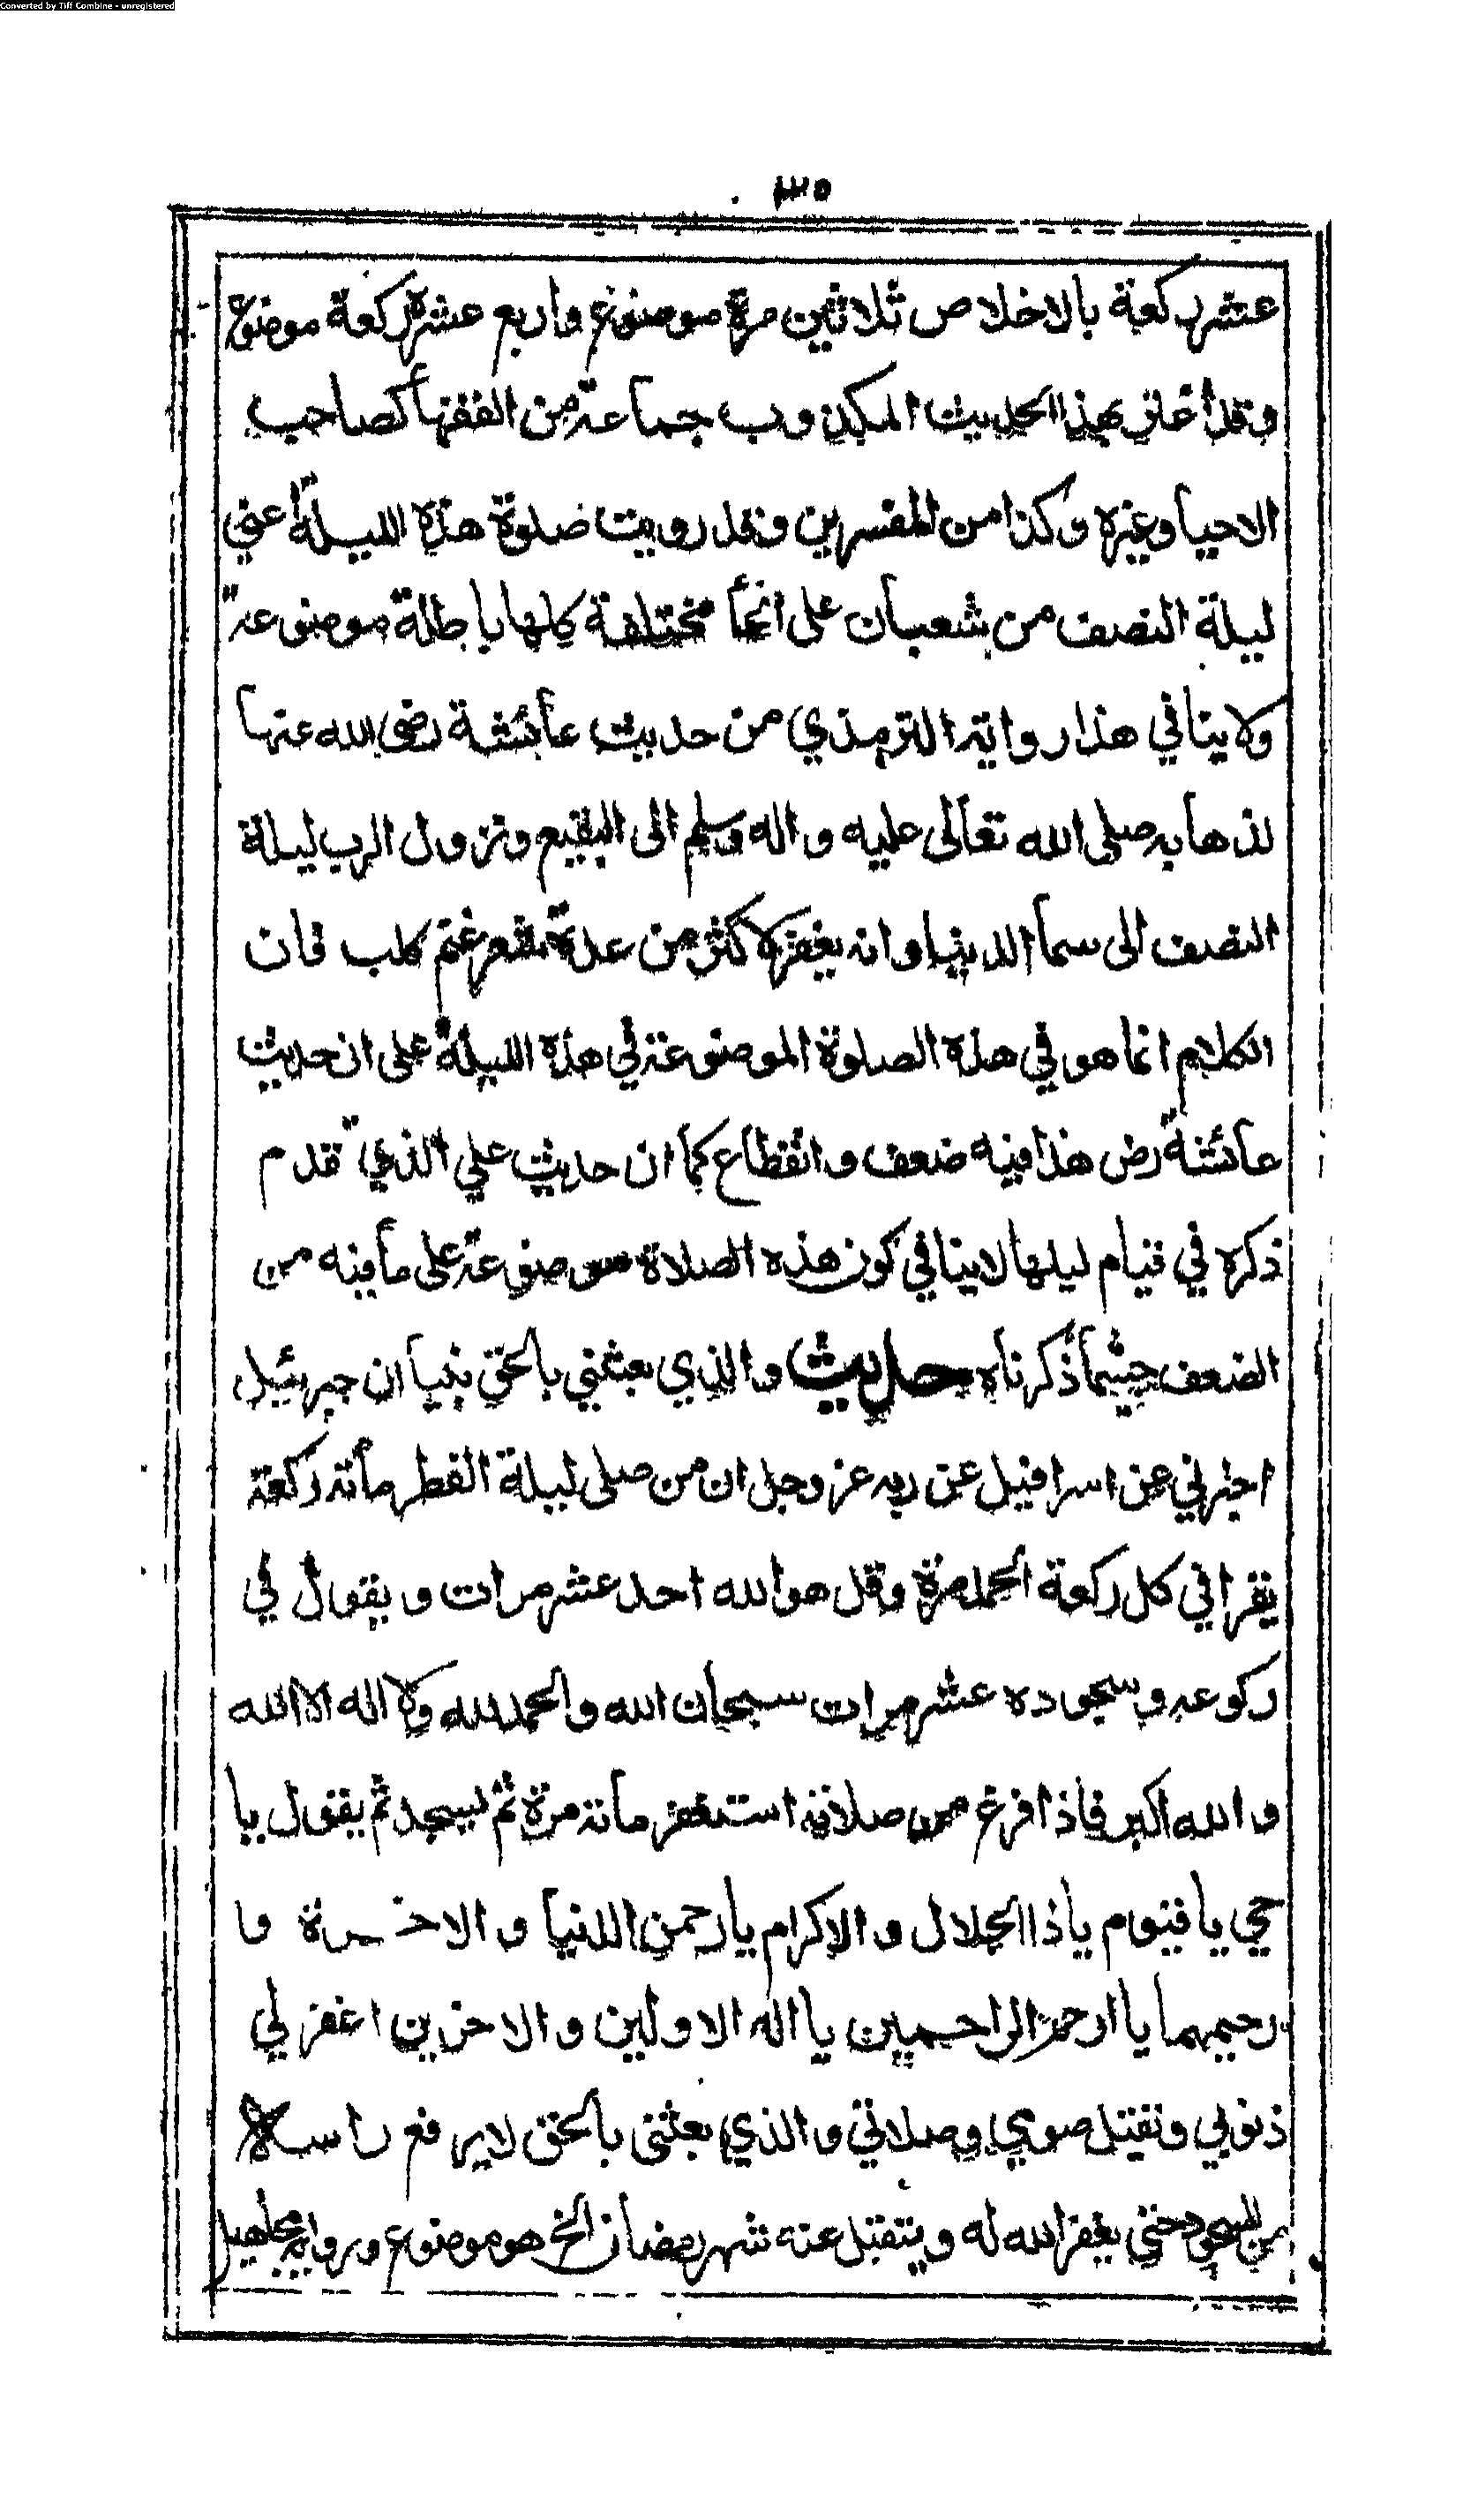 Converted by Tiff Combine - unregistered
٣٥
عشر ركعة بالاخلاص ثلاثين مرة موضوع واربع عشرة ركعة موضوع
وقد اغتر بهذا الحديث المكذوب جماعة من الفقهأ كصاحب
الاحيأ وغيره وكذا من المفسرين وقد رويت صلوة هذه الليلة اعني
ليلة النصف من شعبان على انحأ مختلفة كلها باطلة موضوعة
ولا ينافي هذا رواية الترمذي من حديث عائشة رضى الله عنها
لذهابه صلى الله تعالى عليه واله وسلم الى البقيع ونزول الرب ليلة
النصف الى سمأ الدنيا وانه يغفر لاكثر من عدة شعر غنم كلب فان
الكلام انما هو في هذه الصلوة الموضوعة في هذه الليلة على ان حديث
عائشة رض هذا فيه ضعف وانقطاع كما ان حديث علي الذي قدم
ذكره في قيام ليلها لا ينافي كون هذه الصلاة موضوعة على ما فيه من
الضعف حيثما ذكرناه حديث والذي بعثني بالحق نبيا ان جبرئيل
اخبرني عن اسرافيل عن ربه عز وجل ان من صلى ليلة الفطر مأته ركعة
يقرا في كل ركعة الحمد مرة وقل هو الله احد عشر مرات ويقول في
ركوعه وسجوده عشر مرات سبحان الله والحمد لله ولا اله الا الله
والله اكبر فاذا فرغ من صلاته استغفر مأته مرة ثم يسجد ثم يقول يا
حي يا قيوم يا ذا الجلال والاكرام يا رحمن الدنيا والاخرة و
رحيمهما يا ارحم الراحمين يا اله الاولين والاخرين اغفر لي
ذنوبي وتقبل صومي وصلاتي والذي بعثنى بالحق لا يرفع راسه
من السجود حتى يغفر الله له ويتقبل عنه شهر رمضان الخ هو موضوع ورواية مجاهيل